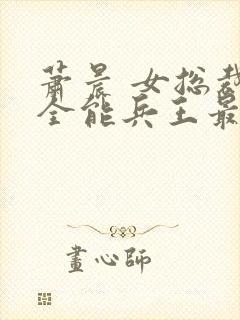 萧晨 女总裁
全能兵王最
畫心師